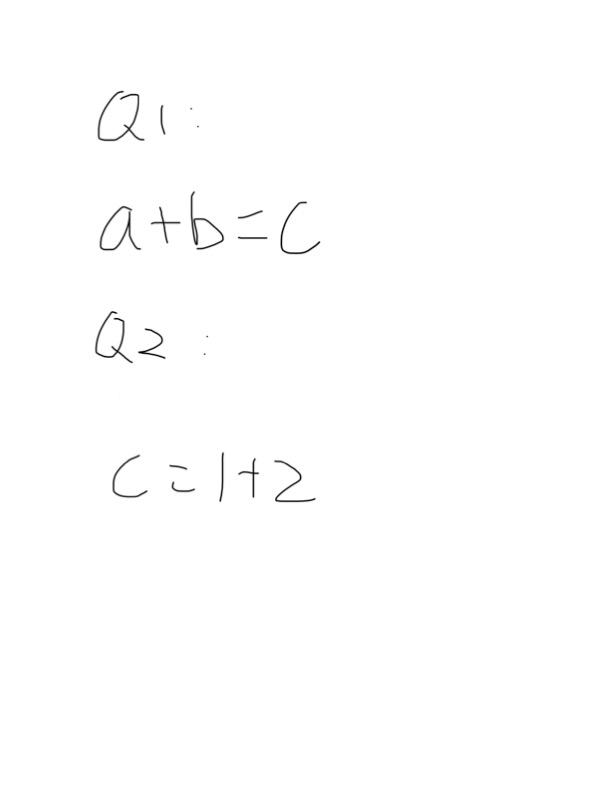 Q1:
a+b=c
Q2:
c=1+2